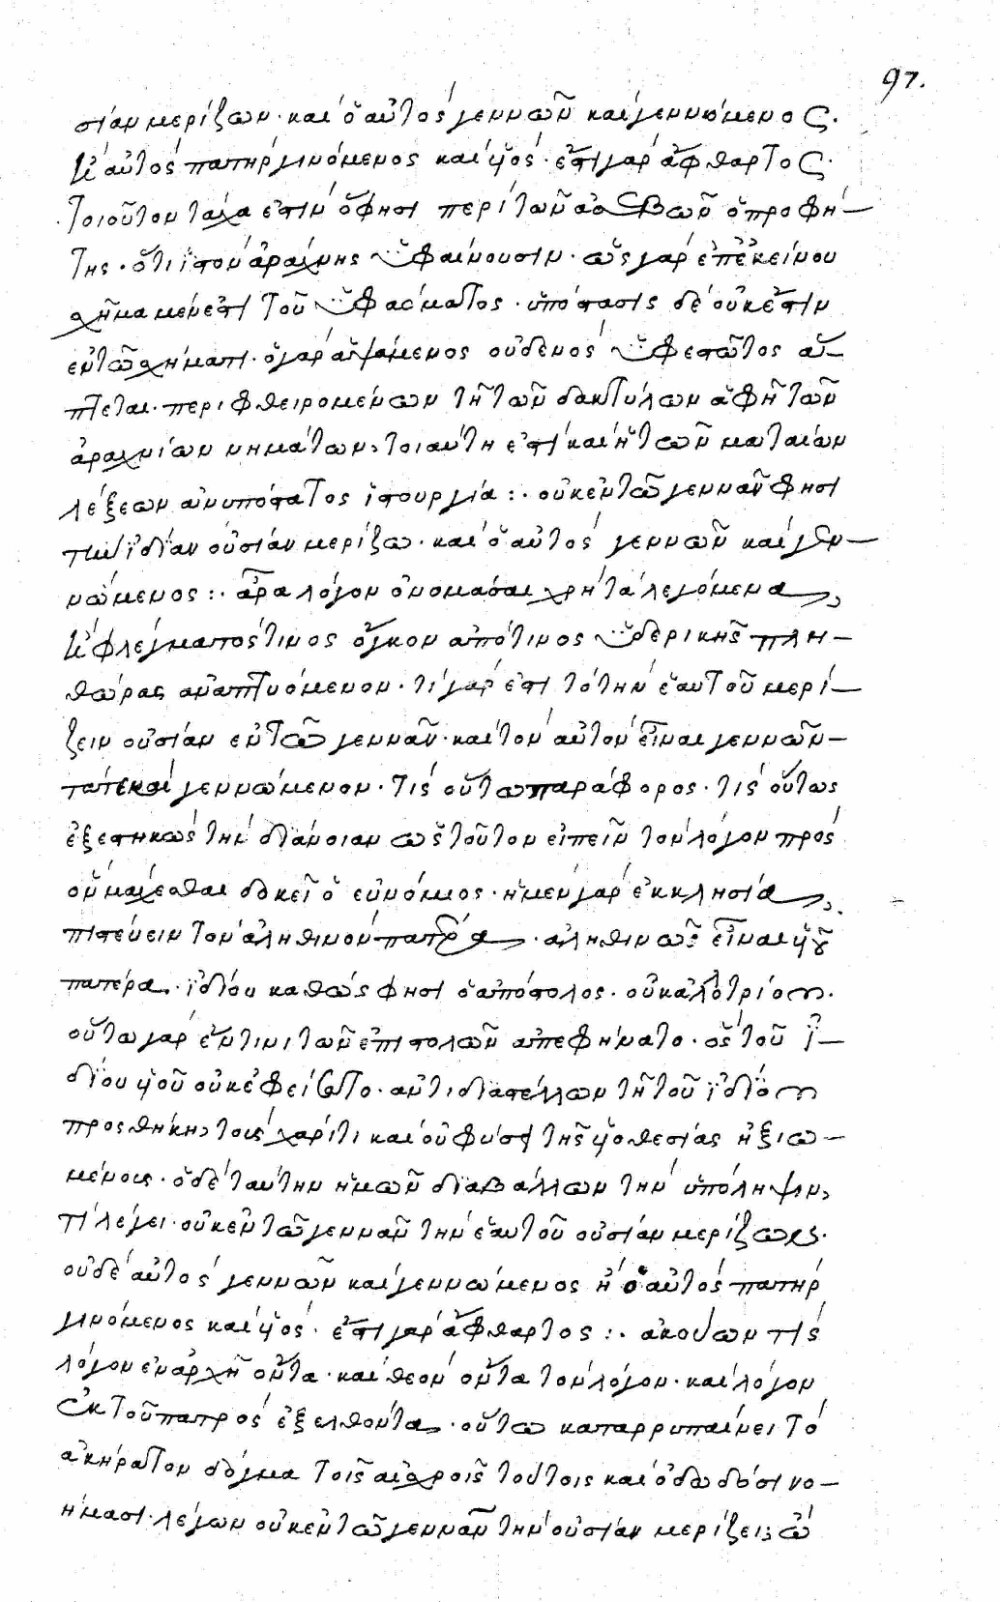 97.
σίαν μερίζων· καὶ ὁ αὐτὸς γεννῶν καὶ γεννώμενος.
καὶ αὐτὸς πατὴρ γινόμενος καὶ υἱός· ἔστι γὰρ ἄφθαρτος.
τοιοῦτον τάχα ἐστὶν ὅ φησι περὶ τῶν ἀσεβῶν ὁ προφή–
της· ὅτι ἱστὸν ἀράχνης ὑφαίνουσιν· ὡς γὰρ ἐπ' ἐκείνου
σχῆμα μέν ἐστι τοῦ ὑφάσματος· ὑπόστασις δὲ οὐκ ἔστιν
ἐν τῶ σχήματι· ὁ γὰρ ἁψάμενος οὐδενὸς ὑφεστῶτος ἅ–
πτεται· περιφθειρομένων τῇ τῶν δακτύλων ἁφῇ τῶν
ἀραχνίων νημάτων, τοιαύτη ἐστὶ καὶ ἡ τῶν ματαίων
λέξεων ἀνυπόστατος ἱστουργία :. οὐκ ἐν τῶ γεννᾶν φησι
τὴν ἰδίαν οὐσίαν μερίζω· καὶ ὁ αὐτὸς γεννῶν καὶ γεν–
νώμενος :. ἆρα λόγον ὀνομάσαι χρὴ τὰ λεγόμενα,
ἢ φλέγματός τινος ὄγκον ἀπό τινος ὑδερικῆς πλη–
θώρας ἀναπτυόμενον· τί γάρ ἐστι τὸ τὴν ἑαυτοῦ μερί–
ζειν οὐσίαν ἐν τῶ γεννᾶν· καὶ τὸν αὐτὸν εἶναι γεννῶν–
τά τε καὶ γεννώμενον· τίς οὕτω παράφορος· τίς οὕτως
ἐξεστηκὼς τὴν διάνοιαν ὡς τοῦτον εἰπεῖν τὸν λόγον πρὸς
ὃν μάχεσθαι δοκεῖ ὁ εὐνόμιος· ἡ μὲν γὰρ ἐκκλησία,
πιστεύειν τὸν ἀληθινὸν πατέρα, ἀληθινῶς εἶναι υἱοῦ
πατέρα. ἰδίου καθώς φησι ὁ ἀπόστολος· οὐκ ἀλοτρίου.
οὕτω γὰρ ἔν τινι τῶν ἐπιστολῶν ἀπεφήνατο· ὃς τοῦ ἰ–
δίου υἱοῦ οὐκ ἐφείσατο· ἀντιδιαστέλλων τῇ τοῦ ἰδίου
προσθήκη, τοὺς χάριτι καὶ οὐ φύσει τῆς υἱοθεσίας ἠξιω–
μένους· ὁ δὲ ταύτην ἡμῶν διαβάλλων τὴν ὑπόληψιν,
τί λέγει· οὐκ ἐν τῶ γεννᾶν τὴν ἑαυτοῦ οὐσίαν μερίζων.
οὐδὲ αὐτὸς γεννῶν καὶ γεννώμενος ἢ ὁ αὐτὸς πατὴρ
γινόμενος καὶ υἱός· ἔστι γὰρ ἄφθαρτος :. ἀκούων τίς
λόγον ἐν ἀρχῇ ὄντα· καὶ θεὸν ὄντα τὸν λόγον· καὶ λόγον
ἐκ τοῦ πατρὸς ἐξελθόντα, οὕτω καταρρυπαίνει τὸ
ἀκήρατον δόγμα τοῖς αἰσχροῖς τούτοις καὶ ὀδωδόσι νο–
ήμασι· λέγων οὐκ ἐν τῶ γεννᾶν τὴν οὐσίαν μερίζει; ὢ